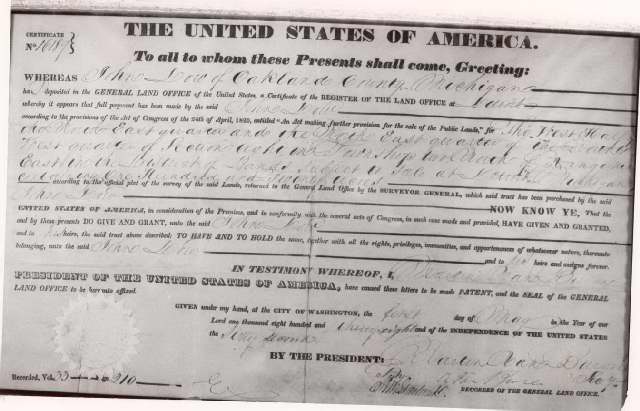 THE UNITED STATES OF AMERICA.
CERTIFICATE
To all to whom these Presents shall come, Greeting:
WHEREAS John Dow of Oakland County Michigan
ha deposited in the GENERAL LAND OFFICE of the United States, a Certificate of the REGISTER OF THE LAND OFFICE at Detroit
whereby it appears that full payment has been made by the said John Dow
according to the provisions of the Act of Congress of the 24th April, 1820, entitled "An Act making further provision for the sale of the Public Lands," for The West Half
East quarter and the East quarter of the
West quarter of Section eight in Township two North of Range
East in the District of Lands subject to Sale at Detroit Michigan
One Hundred and
according to the official plat of the survey of the said Lands, returned to the General Land Office by the SURVEYOR GENERAL, which said tract has been purchased by the said
John Dow
NOW KNOW YE, That the
UNITED STATES OF AMERICA, in consideration of the Premises, and in conformity with the several acts of Congress, in such case made and provided, HAVE GIVEN AND GRANTED,
and by these presents DO GIVE AND GRANT, unto the said John Dow
and to his heirs, the said tract above described; TO HAVE AND TO HOLD the same, together with all the rights, privileges, immunities, and appurtenances of whatsoever nature, thereunto
belonging, unto the said John Dow and to his heirs and assigns forever.
IN TESTIMONY WHEREOF, I, Martin Van Buren
PRESIDENT OF THE UNITED STATES OF AMERICA, have caused these letters to be made PATENT, and the SEAL of the GENERAL
LAND OFFICE to be hereunto affixed.
GIVEN under my hand, at the CITY OF WASHINGTON, the first day of May in the Year of our
Lord one thousand eight hundred and thirty eight and of the INDEPENDENCE OF THE UNITED STATES
the Sixty Second
BY THE PRESIDENT: Martin Van Buren
By Sec'y.
RECORDER OF THE GENERAL LAND OFFICE.
Recorded, Vol.